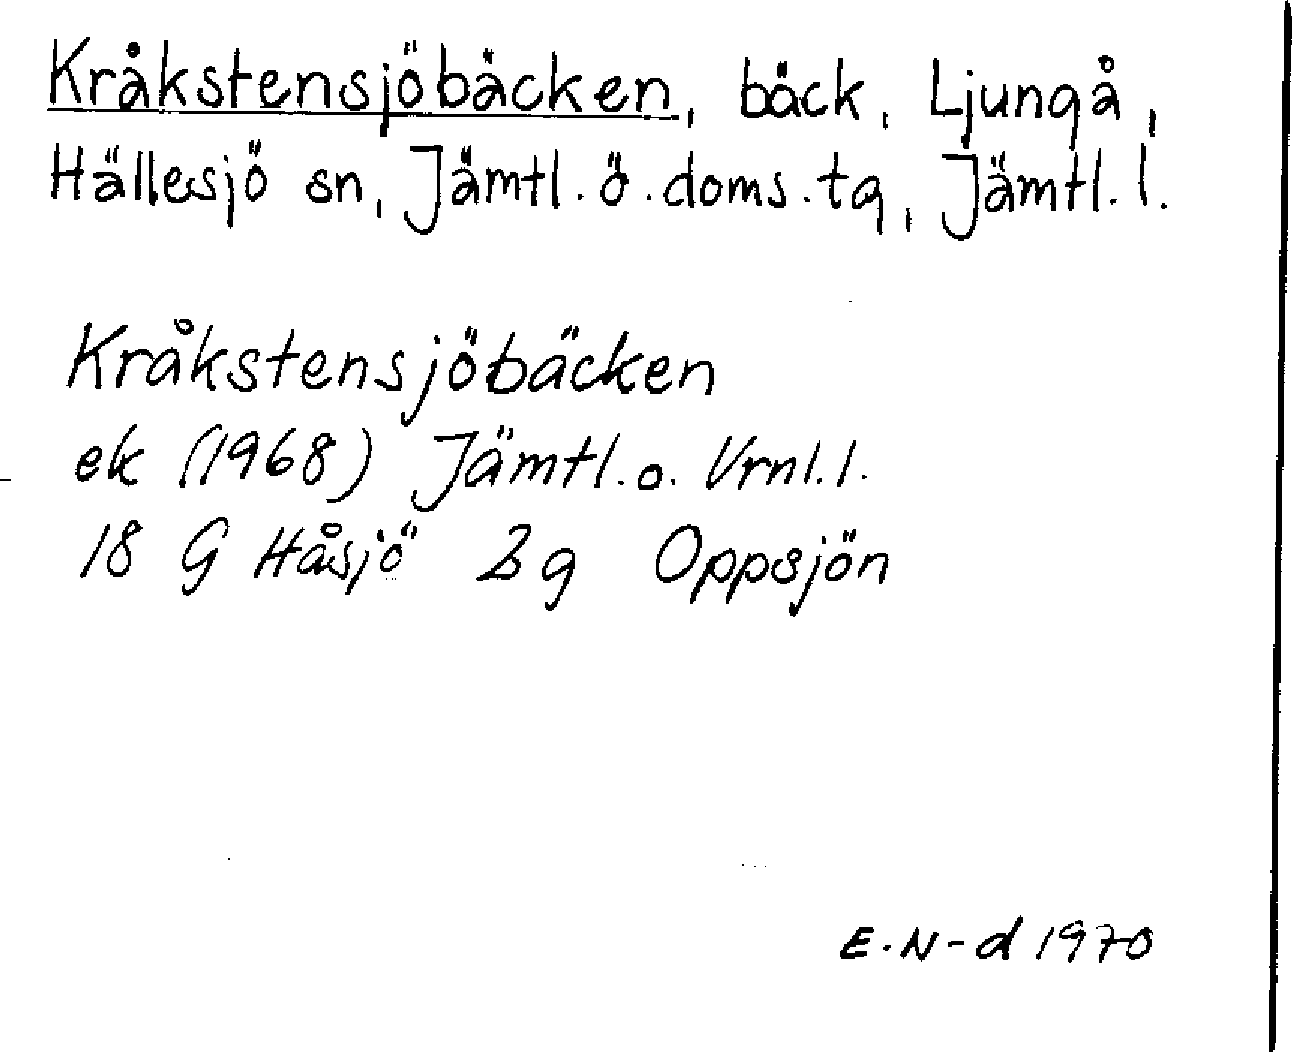 Kråkstensjöbäcken, bäck, Ljungå,
Hällesjö sn, Jämtl. ö. doms. tg, Jämtl. l.
Kråkstensjöbäcken
ek (1968) Jämtl. o. Vrnl. l.
18 G Håsjö 2g Oppsjön
E. N-d 1970